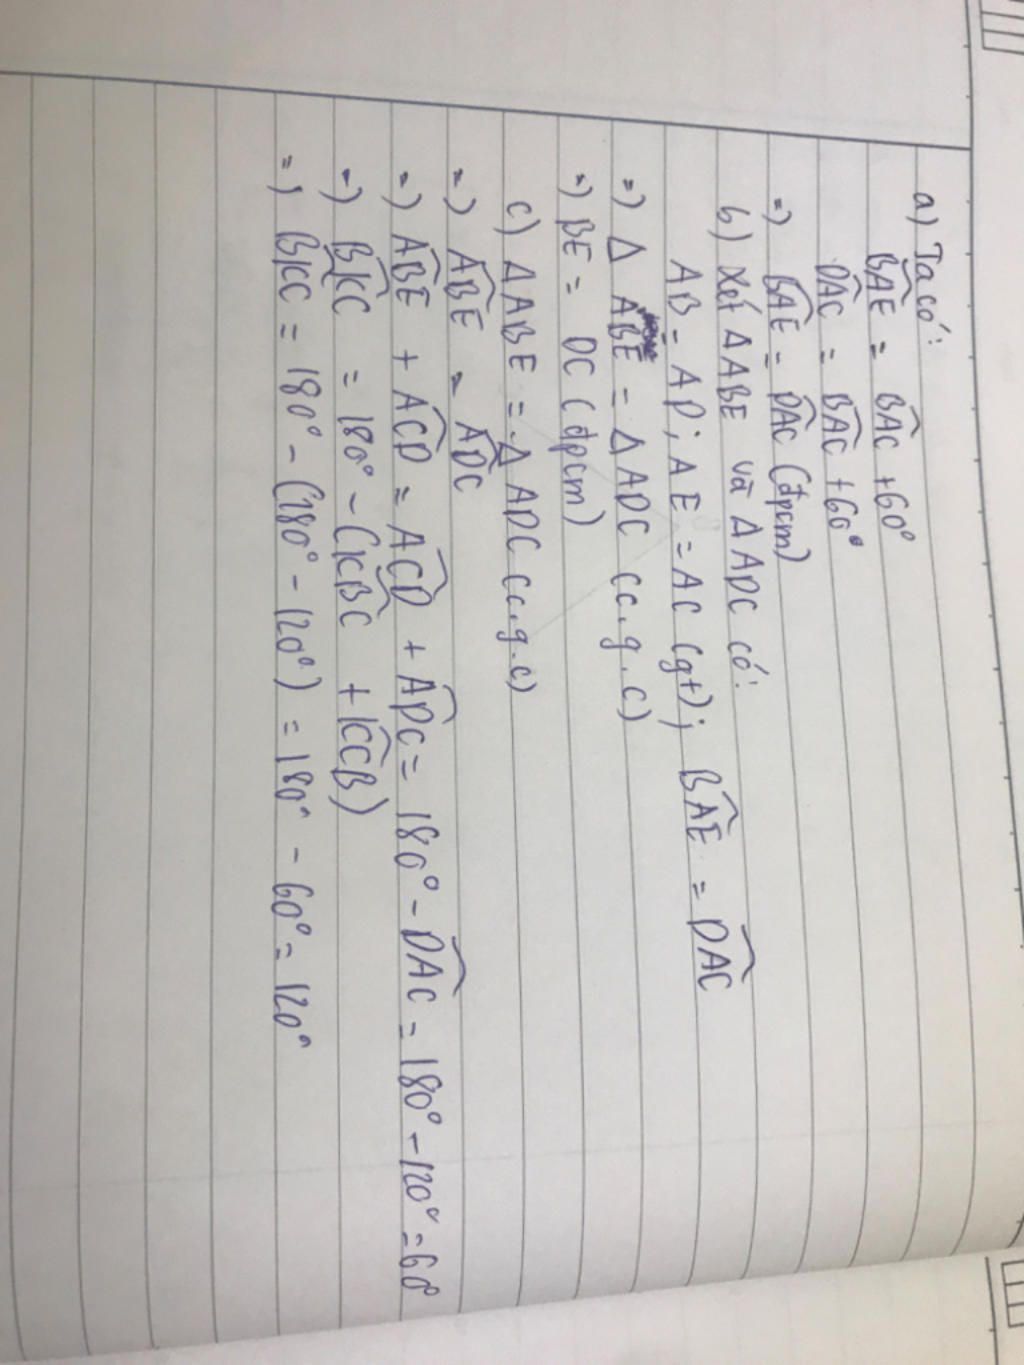 a) Ta có:
BAE = BAC + 60°
DAC = BAC + 60°
=) BAE = DAC (đpcm)
b) Xét Δ ABE và Δ ADC có:
AB = AD; AE = AC (gt); BAE = DAC
=) Δ ABE = Δ ADC (c.g.c)
=) BE = DC (đpcm)
c) Δ ABE = Δ ADC (c.g.c)
=) ABE = ADC
=) ABE + ACD = ACD + ADC = 180° - DAC = 180° - 120° = 60°
=) BKC = 180° - (KBC + KCB)
=) BKC = 180° - (180° - 120°) = 180° - 60° = 120°